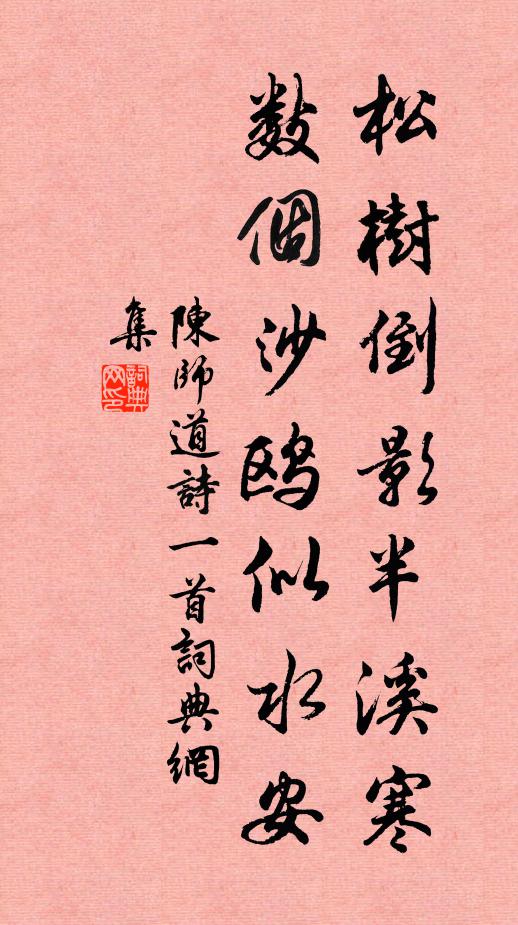 松樹倒影半溪寒
數個沙鷗似水安
陳師道詩一首詞典網
集
詞典网印